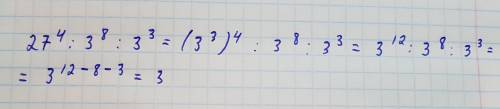 27⁴ : 3⁸ : 3³ = (3³)⁴ : 3⁸ : 3³ = 3¹² : 3⁸ : 3³ =
= 3¹²⁻⁸⁻³ = 3